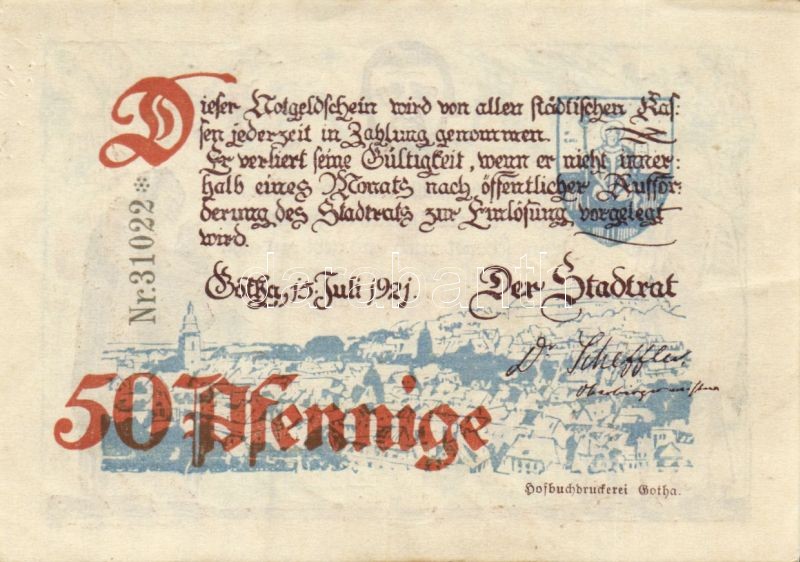 Dieser Notgeldschein wird von allen städtischen Kas=
sen jederzeit in Zahlung genommen.
Er verliert seine Gültigkeit, wenn er nicht inner=
halb eines Monats nach öffentlicher Auffor=
derung des Stadtrats zur Einlösung vorgelegt
wird.
Nr. 31022 *
Gotha, 15. Juli 1921.
Der Stadtrat
Dr Scheffler
Oberbürgermeister
50 Pfennige
Hofbuchdruckerei Gotha.
darabanth